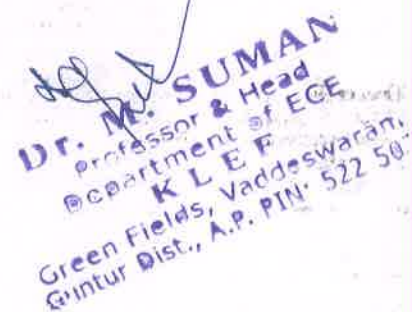 Dr. M. SUMAN
Professor & Head
Department of ECE
K L E F
Green Fields, Vaddeswaran,
Guntur Dist., A.P. PIN: 522 50